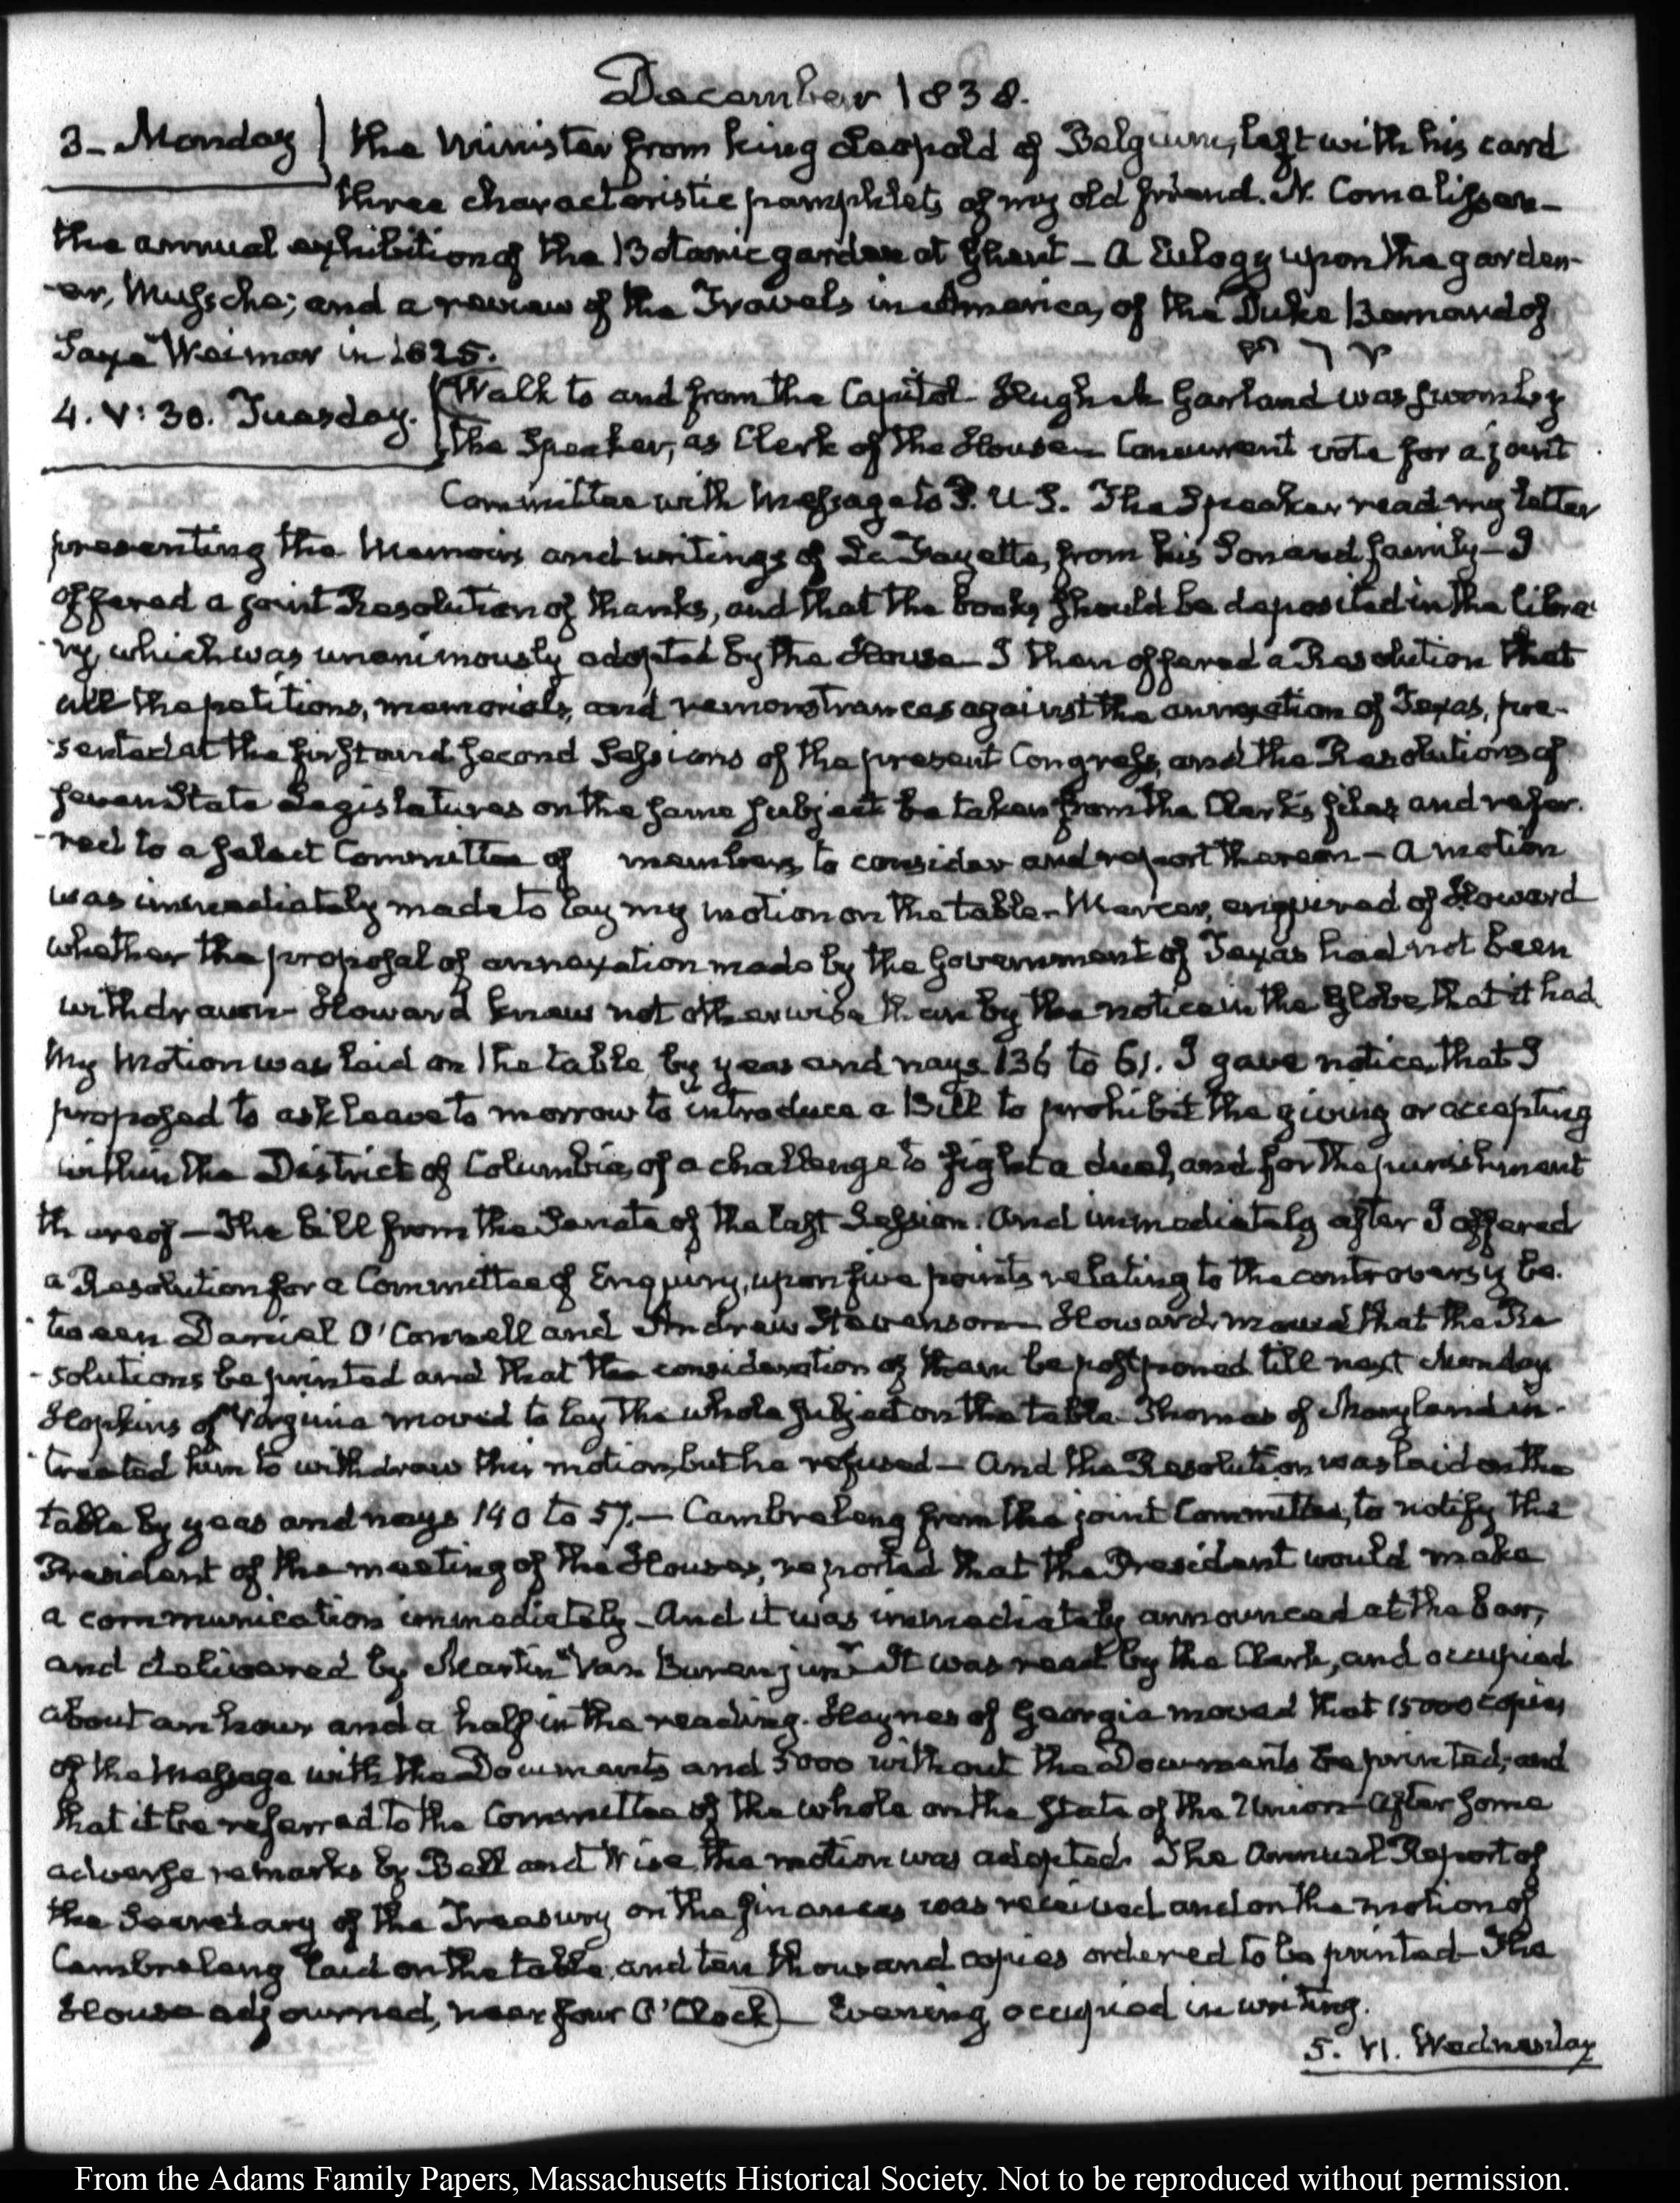 December 1838.
3- Monday) the Minister from king Leopold of Belgium, left with his card
three characteristic pamphlets of my old friend. N. Cornelissen-
the annual exhibition of the Botanic garden at Ghent - A Eulogy upon the garden-
-er, Mussche; and a review of the Travels in America, of the Duke Bernard of
Saxe Weimar in 1825.
4. V: 30. Tuesday. Walk to and from the Capitol Hugh A Garland was sworn by
the Speaker, as Clerk of the House - Concurrent vote for a joint
Committee with Message to P. U S. The Speaker read my letter
presenting the Memoirs and writings of La Fayette, from his Son and family - I
offered a joint Resolution of thanks, and that the books should be deposited in the libra
-ry, which was unanimously adopted by the House - I then offered a Resolution that
all the petitions, memorials, and remonstrances against the annexation of Texas, pre-
-sented at the first and second Sessions of the present Congress, and the Resolutions of
seven State Legislatures on the same subject be taken from the Clerk's files and refer.
-red to a select Committee of members, to consider and report thereon - A motion
was immediately made to lay my motion on the table - Mercer, enquired of Howard
whether the proposal of annexation made by the Government of Texas had not been
withdrawn - Howard knew not otherwise than by the notice in the Globe, that it had
My Motion was laid on the table, by yeas and nays 136 to 61. I gave notice, that I
proposed to ask leave to morrow to introduce a Bill to prohibit the giving or accepting
within the District of Columbia, of a challenge to fight a duel, and for the punishment
thereof - The bill from the Senate of the last Session. And immediately after I offered
a Resolution for a Committee of Enquiry, upon five points relating to the controversy be.
-tween Daniel O'Connell and Andrew Stevenson - Howard moved that the Re
-solutions be printed and that the consideration of them be postponed till next Monday
Hopkins of Virginia moved to lay the whole subject on the table - Thomas of Maryland in-
-treated him to withdraw this motion, but he refused - And the Resolution was laid on the
table by yeas and nays 140 to 57. - Cambreleng from the joint Committee, to notify the
President of the meeting of the Houses, reported that the President would make
a communication immediately - And it was immediately announced at the bar,
and delivered by Martin Van Buren junr It was read by the Clerk, and occupied
about an hour and a half in the reading. Haynes of Georgia moved that 15000 copies
of the Message with the Documents and 5000 without the Documents be printed; and
that it be referred to the Committee of the whole on the state of the Union - After some
adverse remarks by Bell and Wise, the motion was adopted. The Annual Report of
the Secretary of the Treasury on the finances was received and on the motion of
Cambreleng laid on the table, and ten thousand copies ordered to be printed - The
House adjourned, near four O'Clock - Evening, occupied in writing.
5. VI. Wednesday
From the Adams Family Papers, Massachusetts Historical Society. Not to be reproduced without permission.